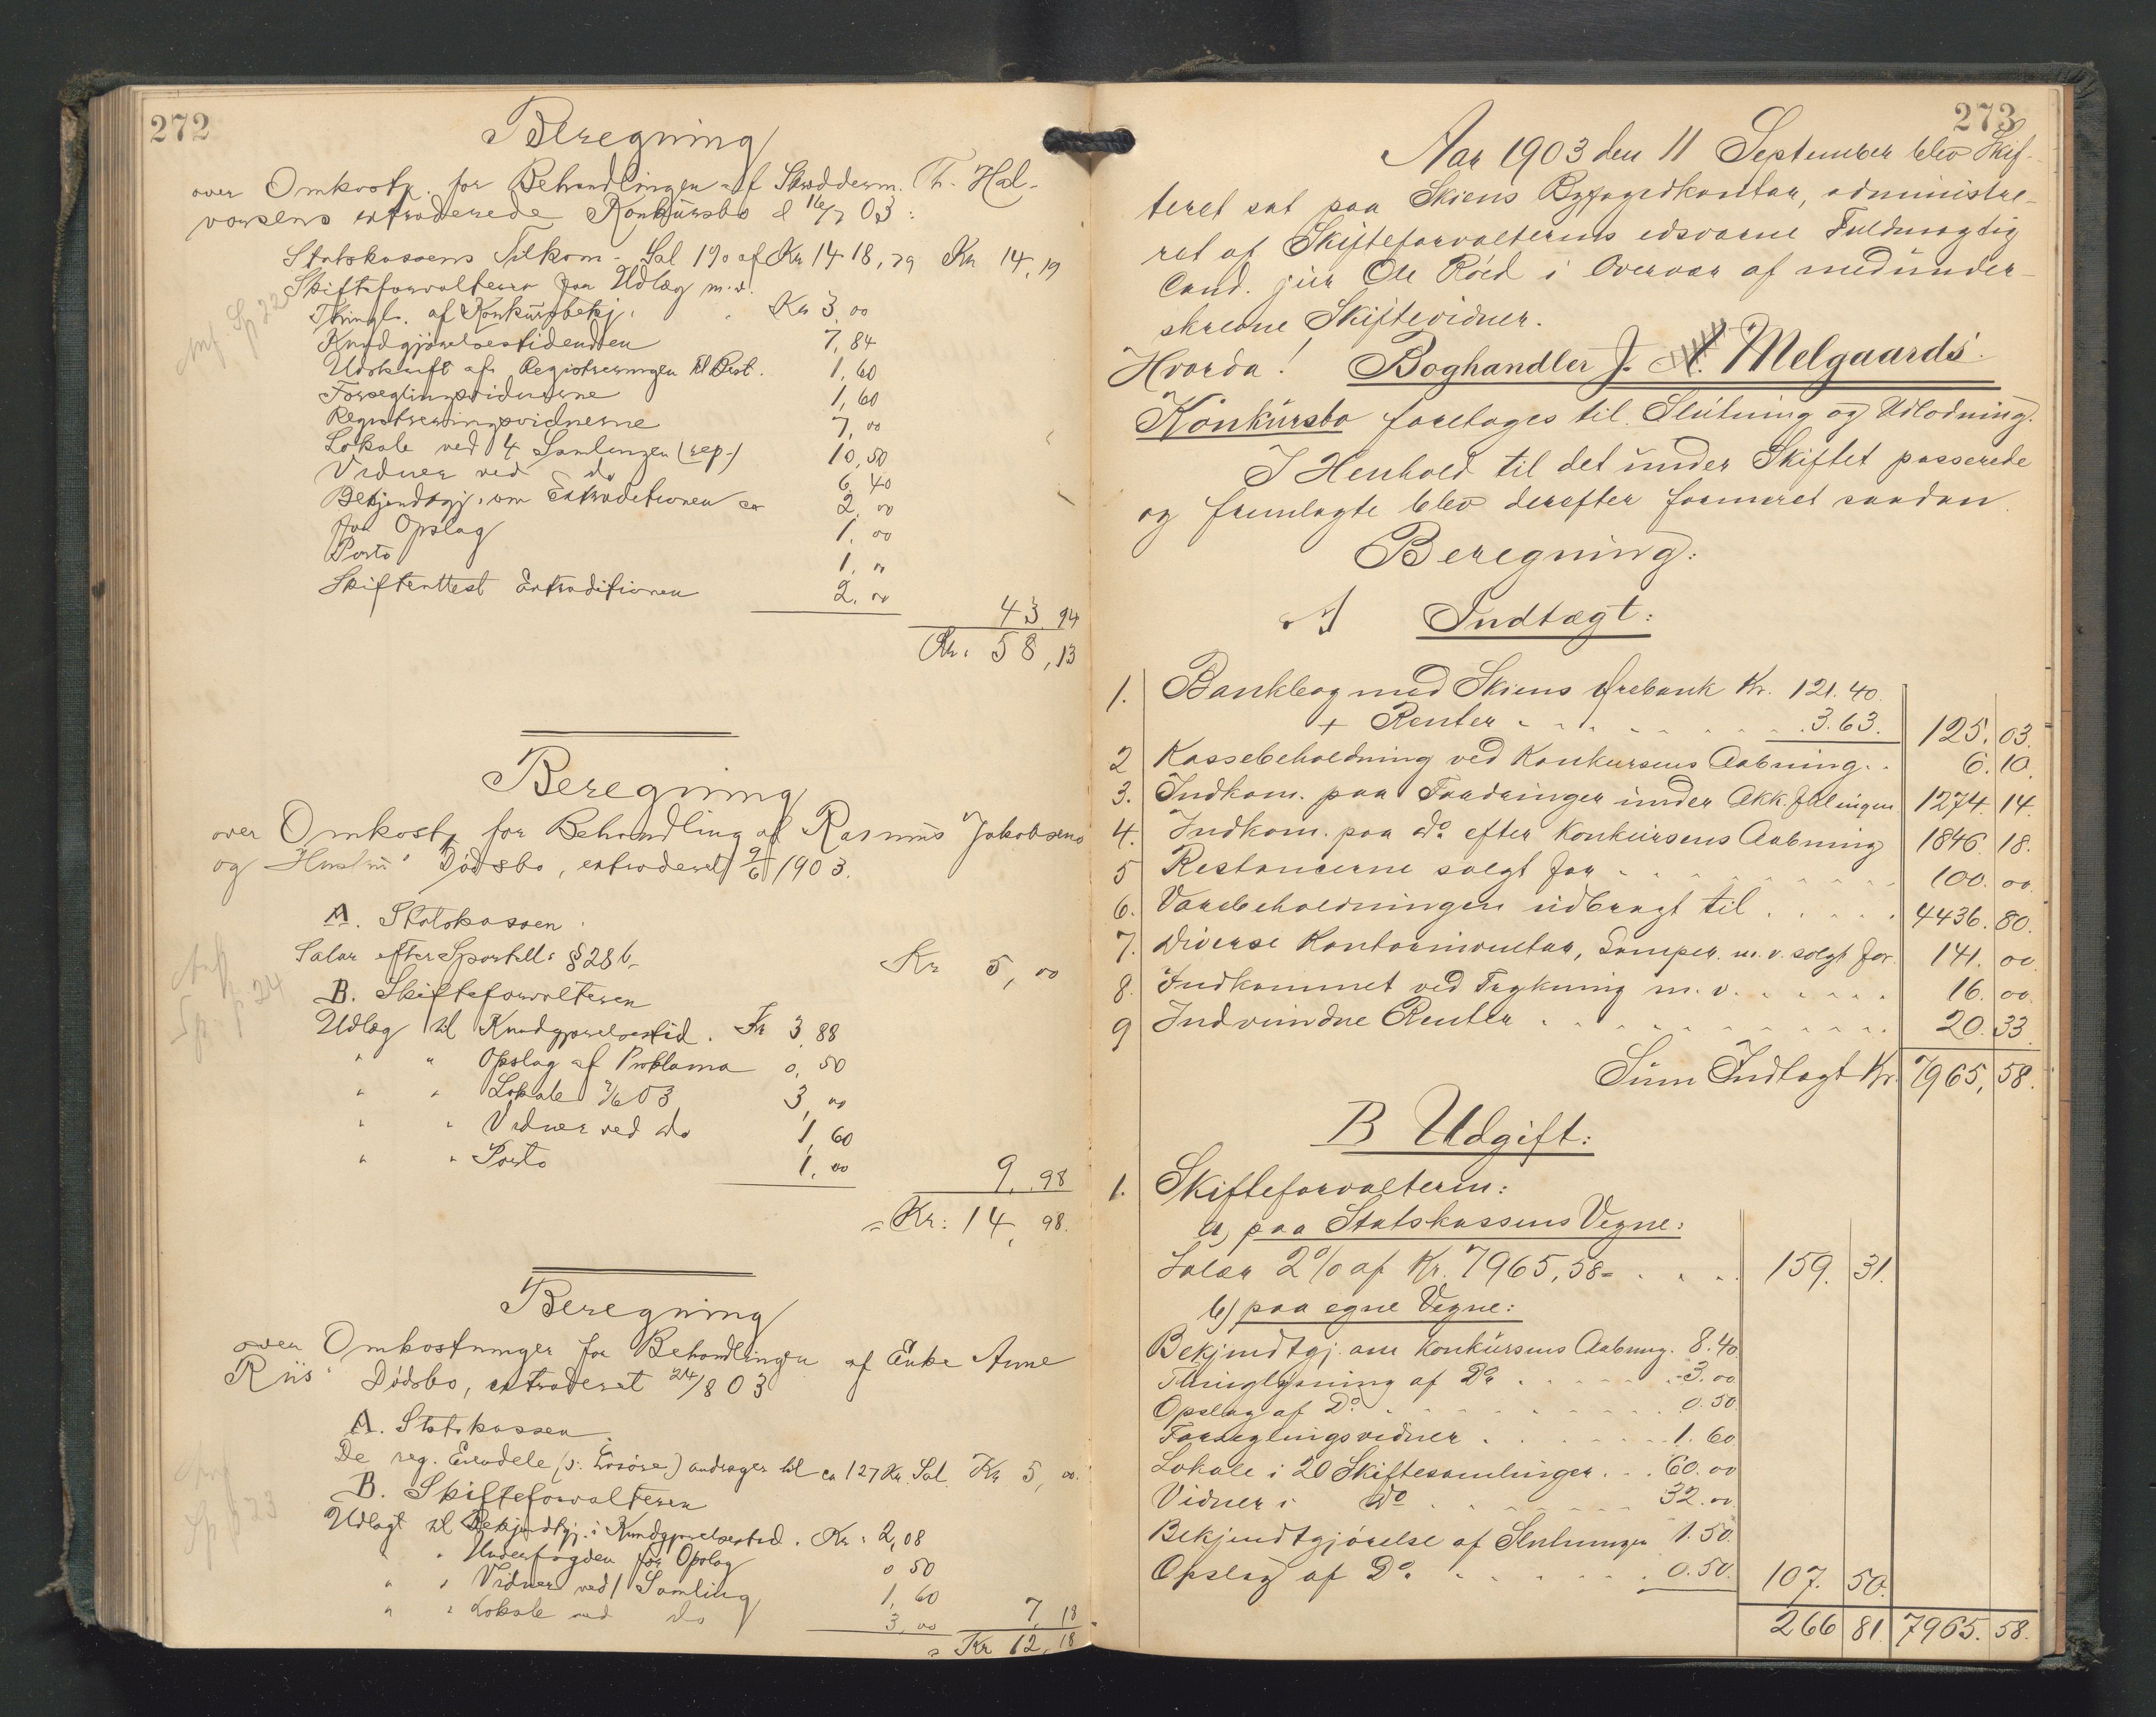 272
Beregning
over Omkostn. for Behandlingen af Skrædderm. Th. Hal-
vorsens extraderede Konkursbo d 16/7 03:
Statskassens Tilkom - Sal 1% af Kr 1418,79 Kr 14,19
Skifteforvalteren for Udlæg m.v.
Thingl. af Konkursbekj. Kr 3,00
Kundgjørelsestidenden 7,84
Udskrift af Registreringen til Best. 1,60
Forseglingsvidnerne 1,60
Registreringsvidnerne 7,00
Lokale ved 4 Samlinger (rep.) 10,50
Vidner ved do 6,40
Bekjendtgj. om Extraditionen ca 2,00
for Opslag 1,00
Porto 1,00
Skifteattest Extraditionen 2,00
43,94
Kr. 58,13
Beregning
over Omkostn for Behandling af Rasmus Jakobsens
og Hustru's Dødsbo, extraderet 9/6 1903.
A. Statskassen
Salar efter Sportell: § 28 b Kr 5,00
B. Skifteforvalteren
Udlæg til Kundgjørelsestid. Kr 3,88
" " Opslag af Proklama 0,50
" " Lokale 9/6 03 3,00
" " Vidner ved do 1,60
" " Porto 1,00
9,98
= Kr: 14,98.
Beregning
over Omkostninger for Behandlingen af Enke Anne
Riis' Dødsbo, extraderet 24/8 03
A. Statskassen
De reg. Eiendele (ɔ: Løsøre) andrager til ca 127 Kr. Sal. Kr 5,00.
B. Skifteforvalteren
Udlagt til Bekjendtgj. i Kundgjørelsestid. Kr: 2,08
" " Underfogden for Opslag 0 50
" " Vidner ved 1 Samling 1,60
" " Lokale ved do 3,00 7,18
= Kr 12,18
273
Aar 1903 den 11 September blev Skif-
teret sat paa Skiens Byfogedkontor, administre-
ret af Skifteforvalterens edsvorne Fuldmægtig
Cand. jur Ole Röed i Overvær af medunder-
skrevne Skiftevidner.
Hvorda! Boghandler J. Melgaards
Konkursbo foretages til Slutning og Udlodning.
I Henhold til det under Skiftet passerede
og fremlagte blev derefter formeret saadan
Beregning:
A Indtægt:
1. Bankbog med Skiens Ørebank Kr. 121.40.
+ Renter 3.63. 125.03.
2 Kassebeholdning ved Konkursens Aabning.. 6.10.
3. Indkom. paa Fordringer under Akk.fhlingen 1274.14.
4. Indkom. paa do efter Konkursens Aabning 1846.18.
5 Restancerne solgt for 100.00.
6. Varebeholdningen udbragt til 4436.80.
7. Diverse Kontorinventar, Lamper m.v. solgt for 141.00.
8. Indkommet ved Trykning m.v. 16.00.
9 Indvundne Renter 20.33.
Sum Indtægt Kr. 7965,58.
B Udgift:
1. Skifteforvalteren:
a) paa Statskassens Vegne:
Salær 2% af Kr. 7965,58 = 159.31.
b) paa egne Vegne:
Bekjendtgj. om Konkursens Aabning. 8.40
Thinglysning af Do 3.00
Opslag af Do 0.50.
Forseglingsvidner 1.60
Lokale i 20 Skiftesamlinger 60.00
Vidner i do 32.00.
Bekjendtgjörelse af Slutningen 1.50.
Opslag af Do 0.50. 107.50.
266 81. 7965.58.